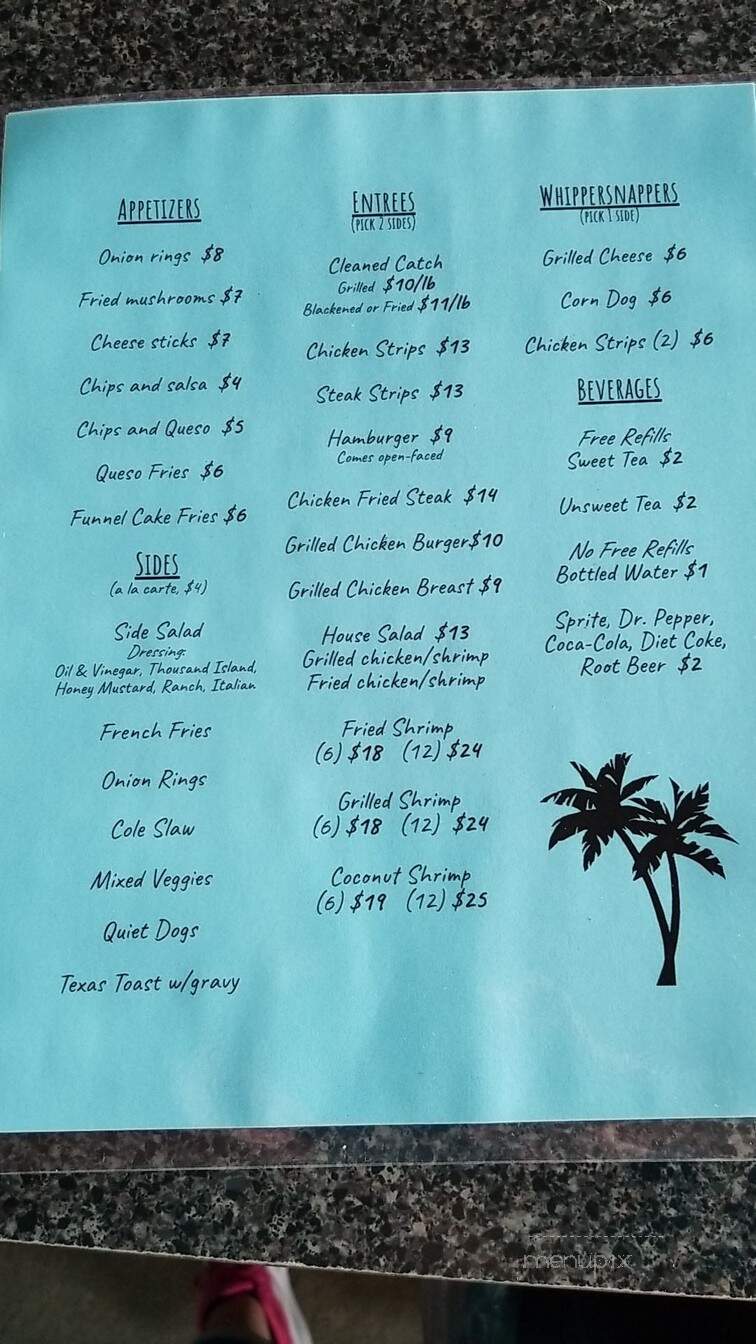 APPETIZERS
Onion rings $8
Fried mushrooms $7
Cheese sticks $7
Chips and salsa $4
Chips and Queso $5
Queso Fries $6
Funnel Cake Fries $6
SIDES
(a la carte, $4)
Side Salad
Dressing:
Oil & Vinegar, Thousand Island,
Honey Mustard, Ranch, Italian
French Fries
Onion Rings
Cole Slaw
Mixed Veggies
Quiet Dogs
Texas Toast w/gravy
ENTREES
(PICK 2 SIDES)
Cleaned Catch
Grilled $10/lb
Blackened or Fried $11/lb
Chicken Strips $13
Steak Strips $13
Hamburger $9
Comes open-faced
Chicken Fried Steak $14
Grilled Chicken Burger$10
Grilled Chicken Breast $9
House Salad $13
Grilled chicken/shrimp
Fried chicken/shrimp
Fried Shrimp
(6) $18 (12) $24
Grilled Shrimp
(6) $18 (12) $24
Coconut Shrimp
(6) $19 (12) $25
WHIPPERSNAPPERS
(PICK 1 SIDE)
Grilled Cheese $6
Corn Dog $6
Chicken Strips (2) $6
BEVERAGES
Free Refills
Sweet Tea $2
Unsweet Tea $2
No Free Refills
Bottled Water $1
Sprite, Dr. Pepper,
Coca-Cola, Diet Coke,
Root Beer $2
menupix